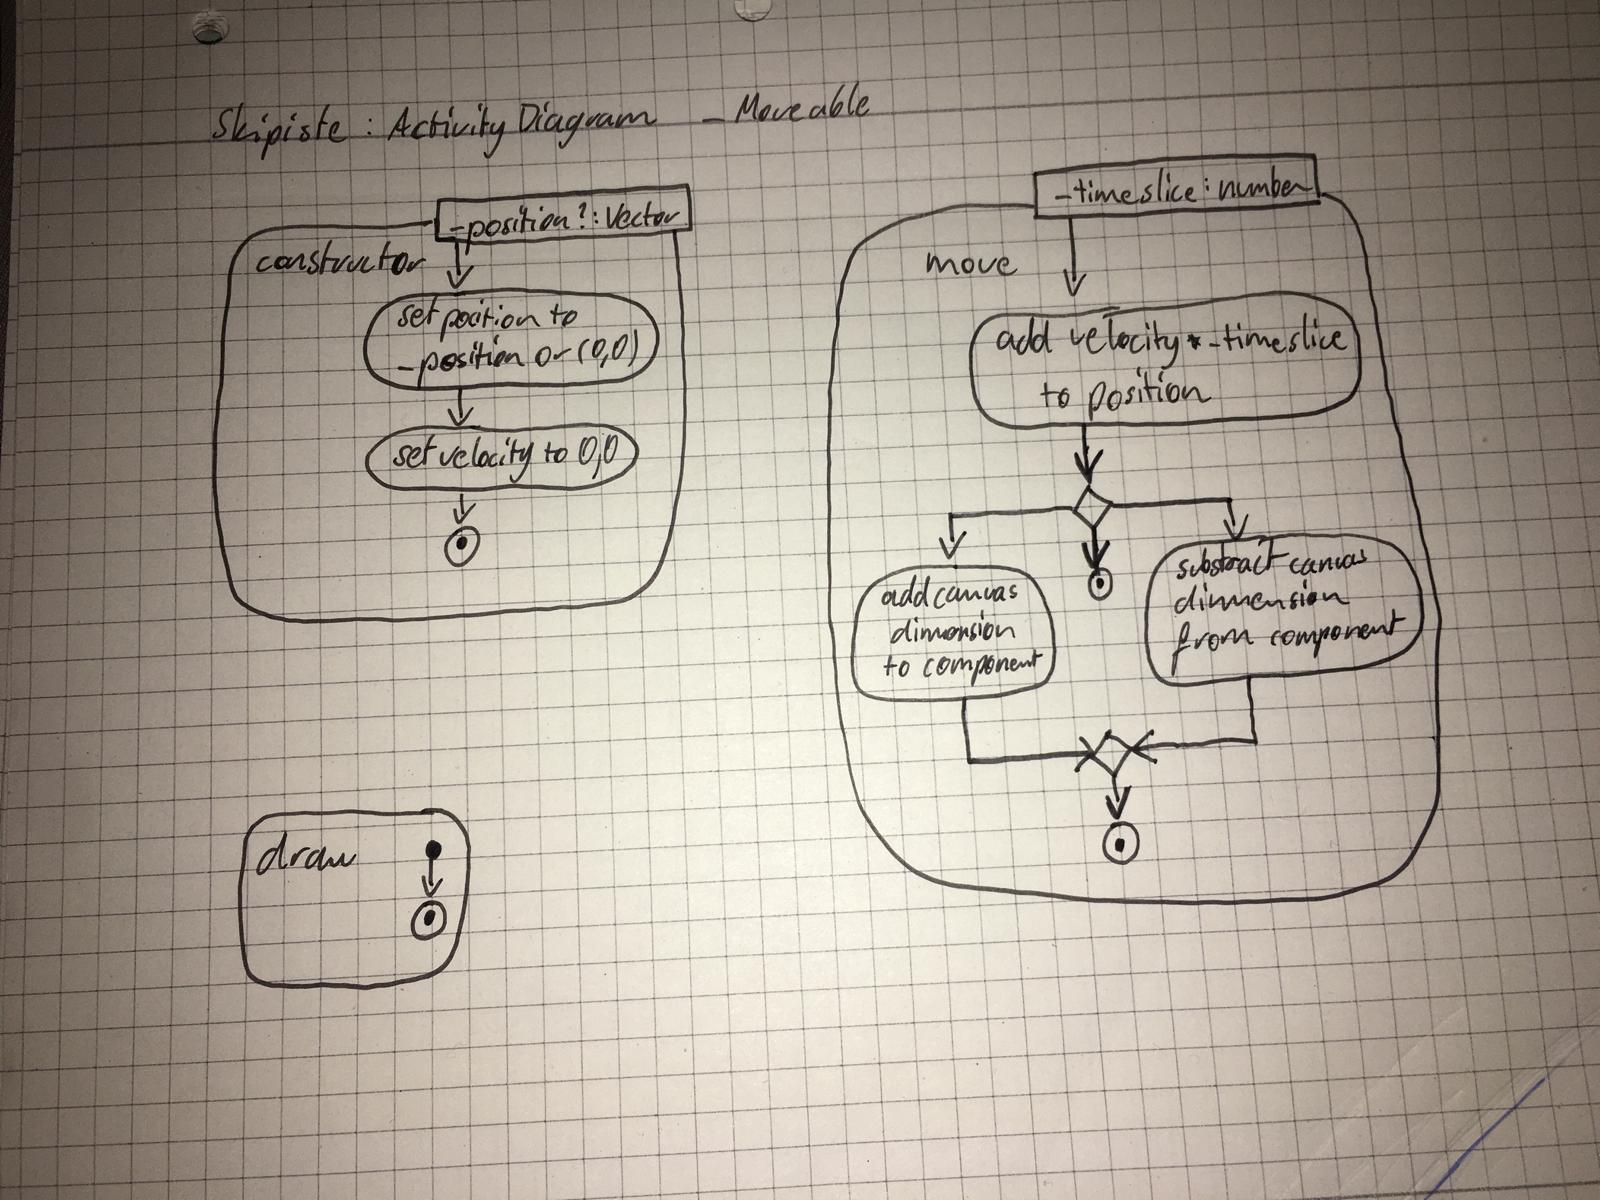 Skipiste : Activity Diagram _ Moveable
_position? : Vector
constructor
set position to
_position or (0,0)
set velocity to 0,0
_timeslice : number
move
add velocity * _timeslice
to position
add canvas
dimension
to component
substract canvas
dimmension
from component
draw